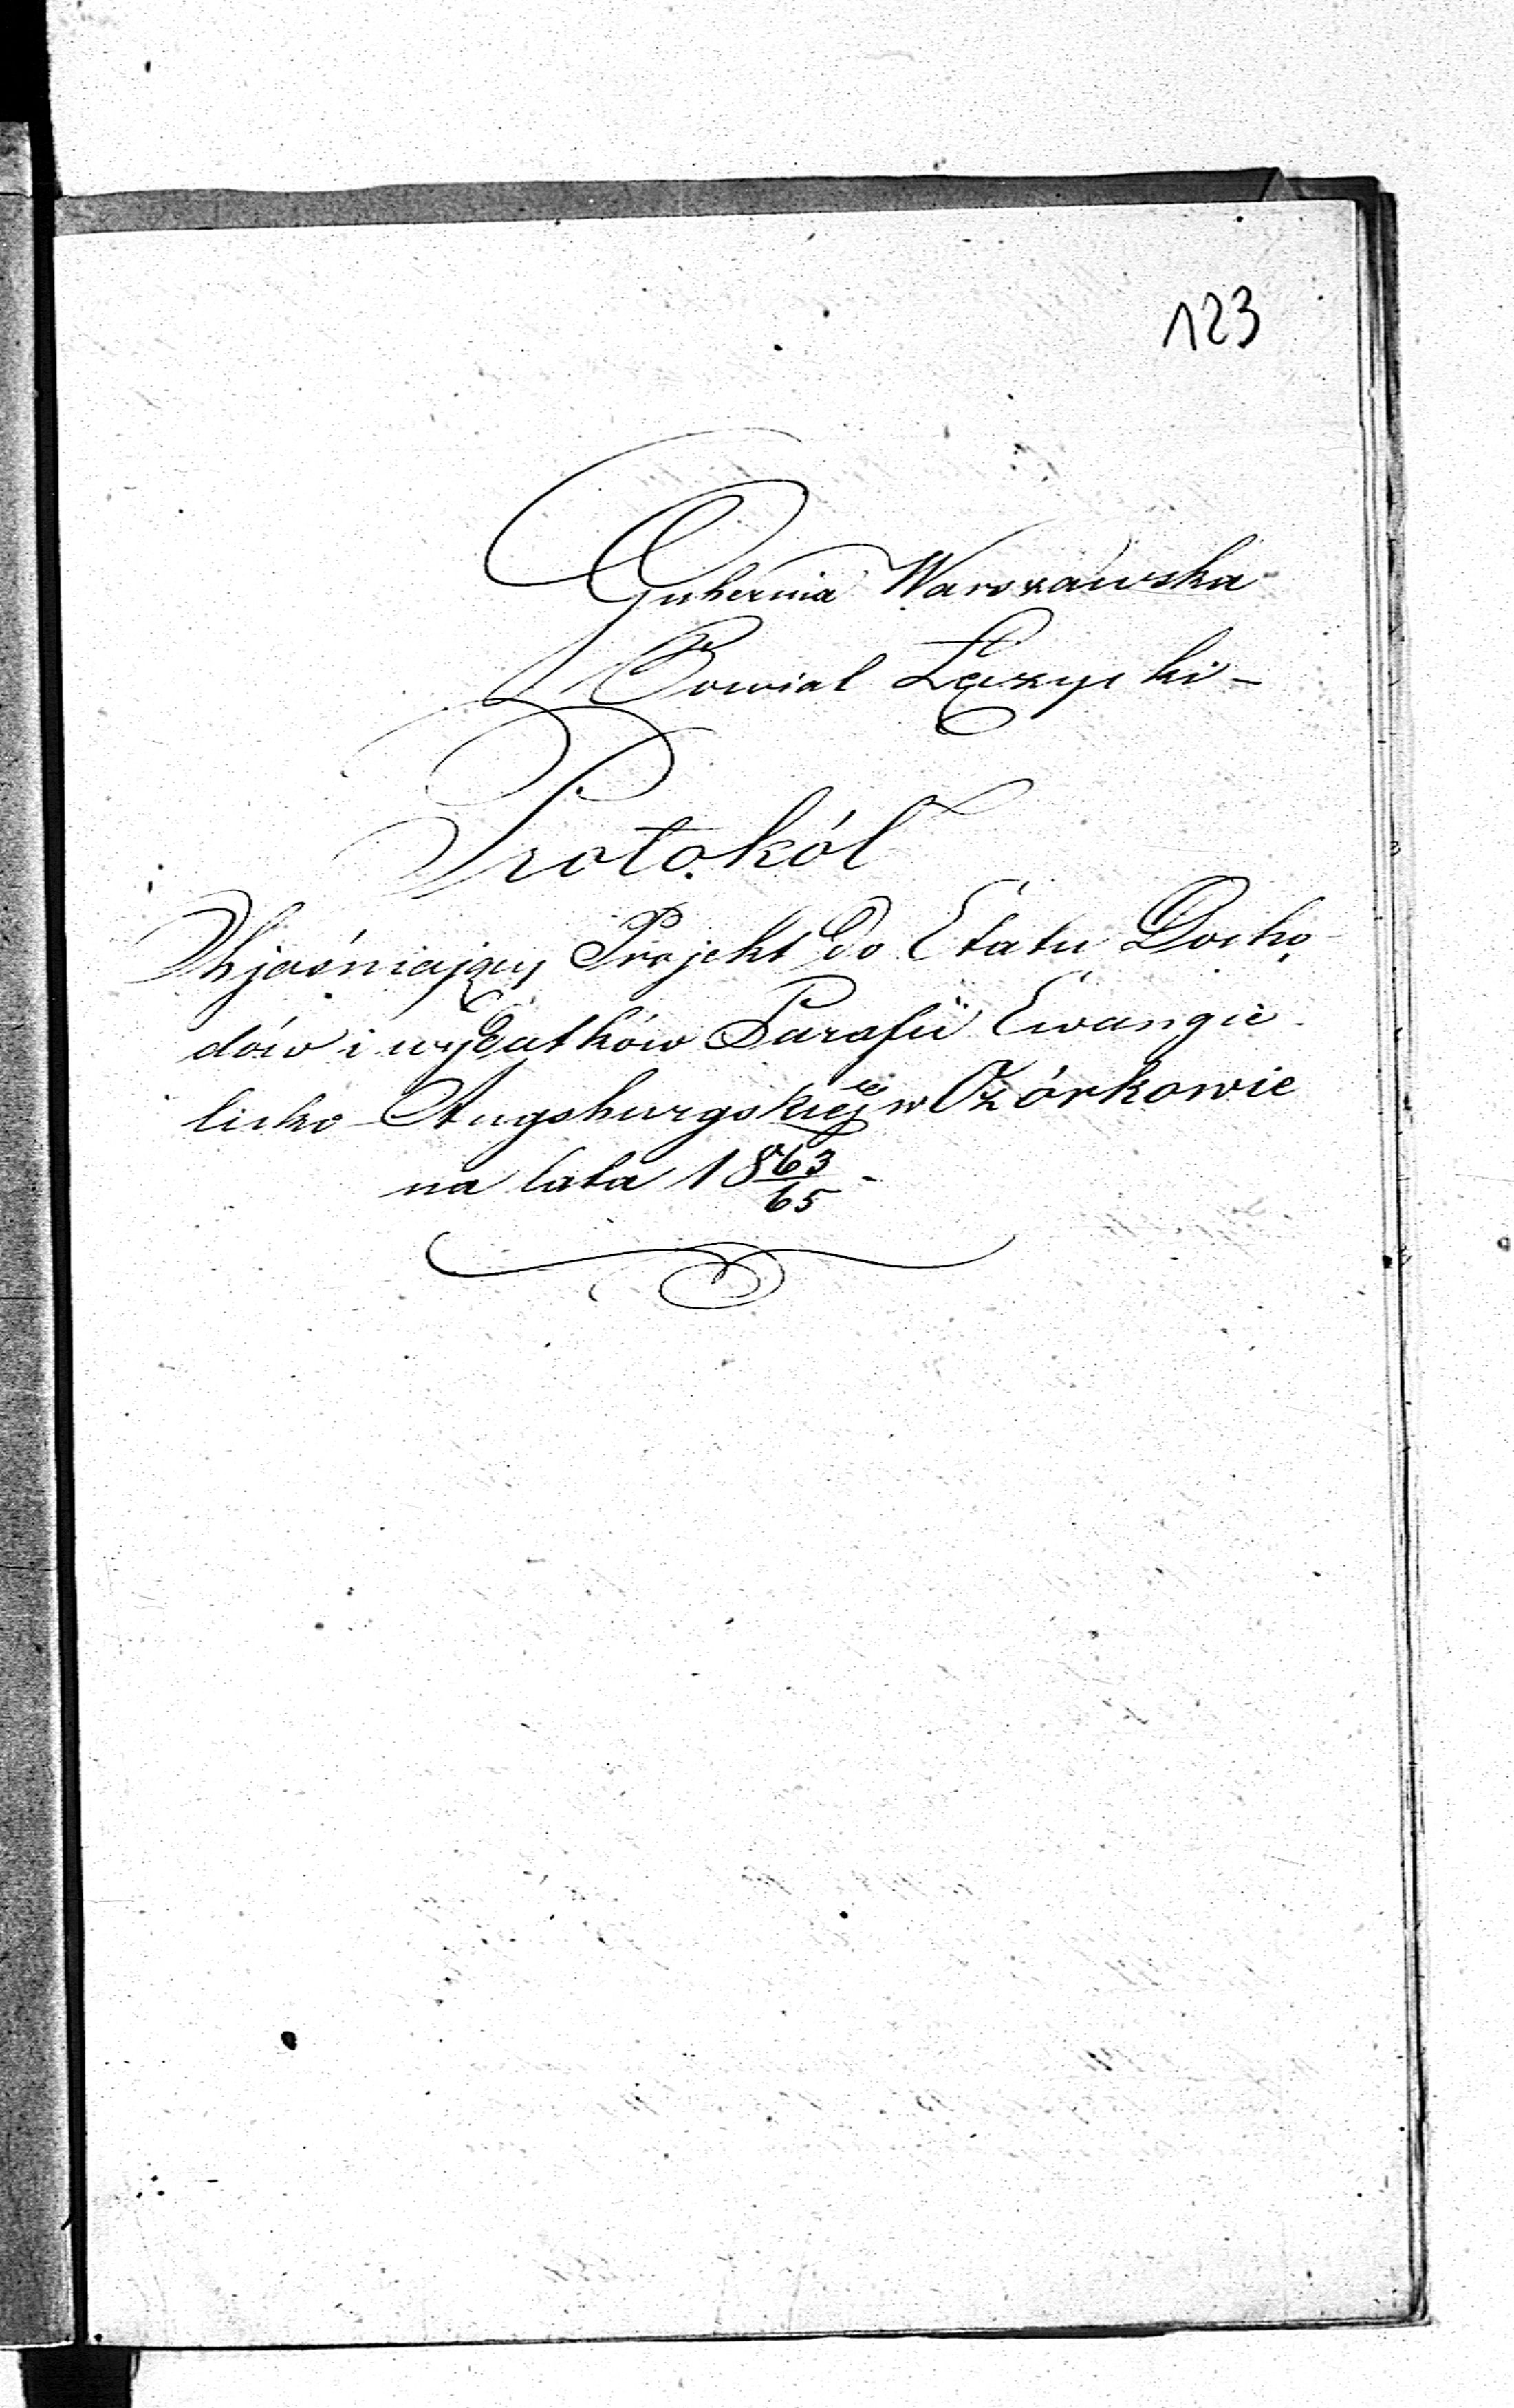 123
Gubernia Warszawska
Powiat Łęczycki -
Protokół
Objaśniający Projekt do Etatu Docho-
dów i wydatków Parafii Ewangie-
licko - Augsburgskiéj w Ozórkowie
na lata 1863/65 -